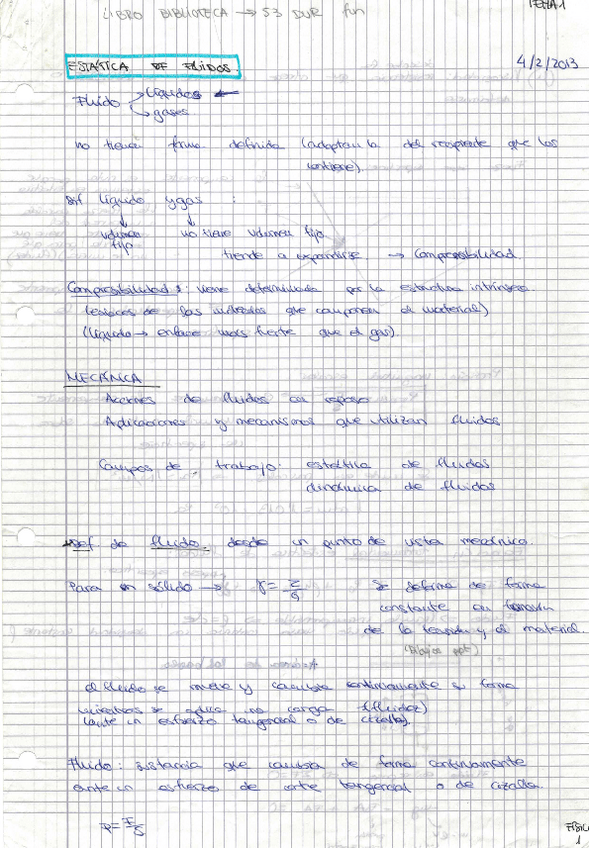 LIBRO BIBLIOTECA → 53 DUR fun
TEMA 1
ESTÁTICA DE FLUIDOS
4/2/2013
Fluido → líquidos ←
→ gases
no tiene forma definida (adoptan la del recipiente que los
contiene).
Dif líquido y gas :
volumen fijo
no tiene volumen fijo
tiende a expandirse → Compresibilidad
Compresibilidad : viene determinada por la estructura intrínseca
(enlaces de las moléculas que componen el material)
(líquido → enlace más fuerte que el gas).
MECÁNICA
Acciones de fluidos en reposo
Aplicaciones y mecanismos que utilizan fluidos
Campos de trabajo: estática de fluidos
dinámica de fluidos
Def. de fluido. desde un punto de vista mecánico.
Para un sólido → γ = τ/G Se deforma de forma
constante en función
de la tensión y el material.
(dibujos ppt)
el fluido se mueve y cambia continuamente su forma
mientras se aplica una carga (fluidez)
(ante un esfuerzo tangencial o de cizalla).
Fluido : sustancia que cambia de forma continuamente
ante un esfuerzo de corte tangencial o de cizalla.
P = F/S
1